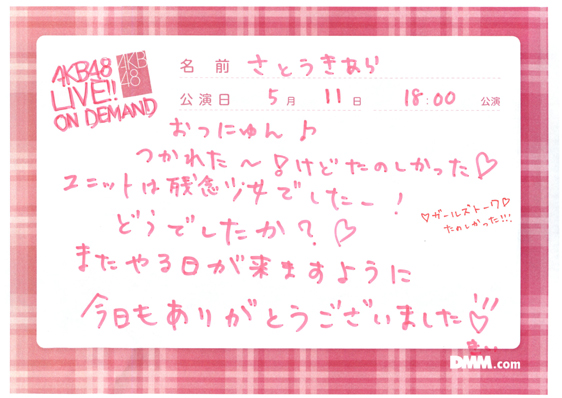 AKB48
LIVE!!
ON DEMAND
AKB
48
名 前 さとうきあら
公演日 5月 11日 18:00 公演
おつにゅん♪
つかれた〜!けどたのしかった♡
ユニットは残念少女でしたー!
どうでしたか?♡
♡ガールズトーク♡
たのしかった!!!
またやる日が来ますように
今日もありがとうございました♡
DMM.com